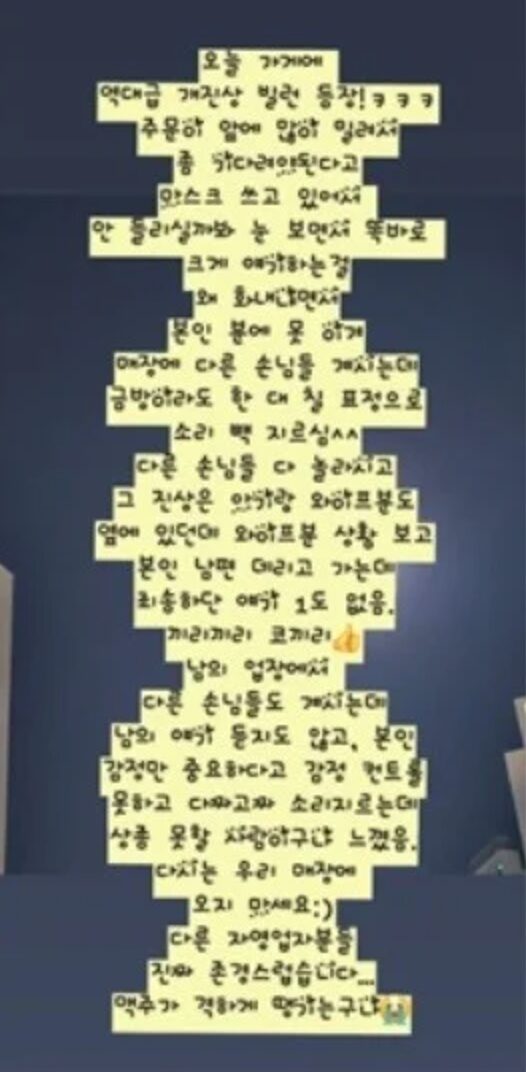 오늘 가게에
역대급 개진상 빌런 등장!ㅋㅋㅋ
주문이 앞에 많이 밀려서
좀 기다려야된다고
마스크 쓰고 있어서
안 들리실까봐 눈 보면서 똑바로
크게 얘기하는걸
왜 화내냐면서
본인 분에 못 이겨
매장에 다른 손님들 계시는데
금방이라도 한 대 칠 표정으로
소리 빽 지르심^^
다른 손님들 다 놀라시고
그 진상은 아기랑 와이프분도
옆에 있던데 와이프분 상황 보고
본인 남편 데리고 가는데
죄송하단 얘기 1도 없음.
끼리끼리 코끼리👍
남의 업장에서
다른 손님들도 계시는데
남의 얘기 듣지도 않고, 본인
감정만 중요하다고 감정 컨트롤
못하고 다짜고짜 소리지르는데
상종 못할 사람이구나 느꼈음.
다시는 우리 매장에
오지 마세요:)
다른 자영업자분들
진짜 존경스럽습니다...
맥주가 격하게 땡기는구나😭